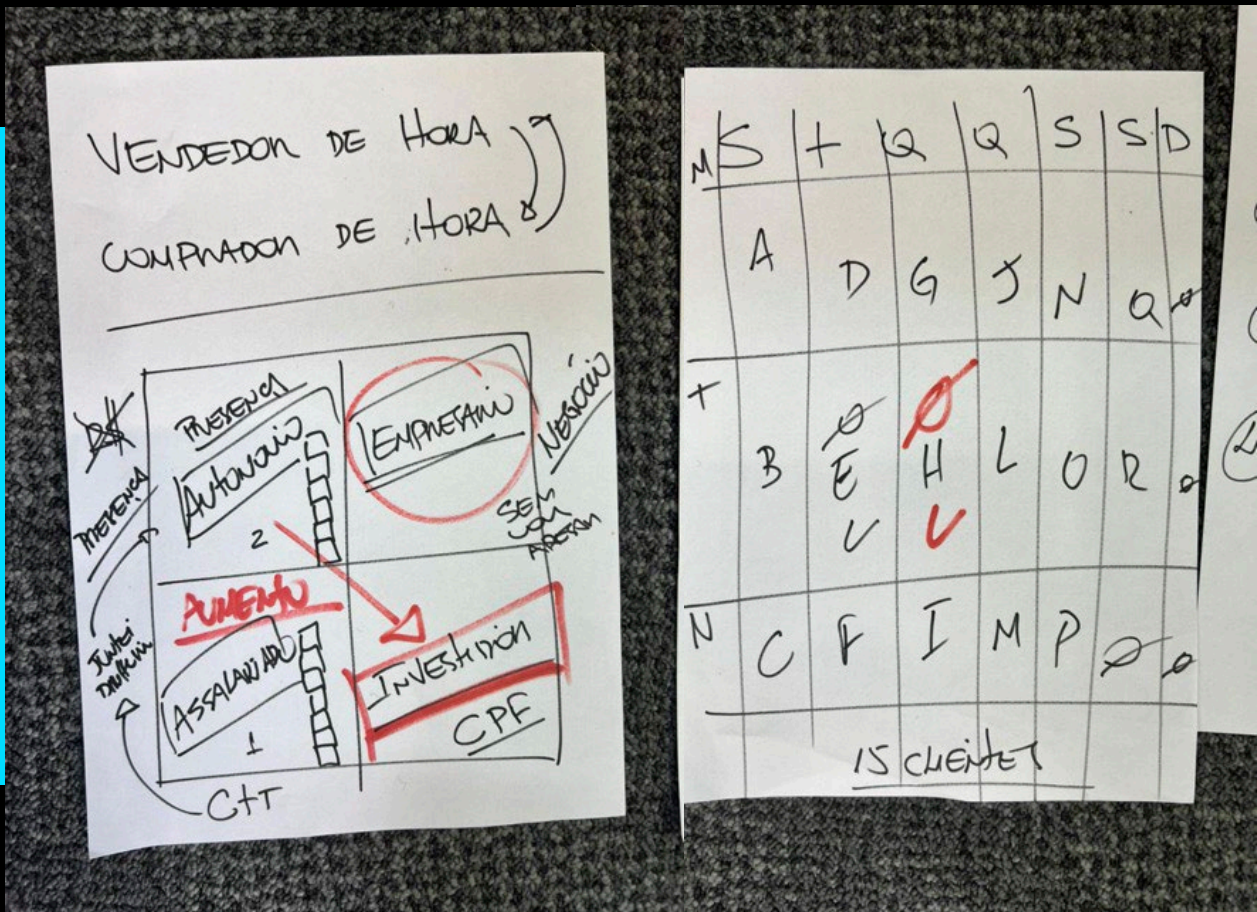 VENDEDOR DE HORA
COMPRADOR DE HORA
PRESENÇA
AUTONOMO
2
EMPRESARIO
NEGÓCIO
SEM
PRESENÇA
AUMENTO
ASSALARIADO
1
INVESTIDOR
CPF
CLT
M S T Q Q S S D
A D G J N Q ø
T
Ø Ø
B E H L O R ø
V V
N C F I M P Ø ø
15 CLIENTES